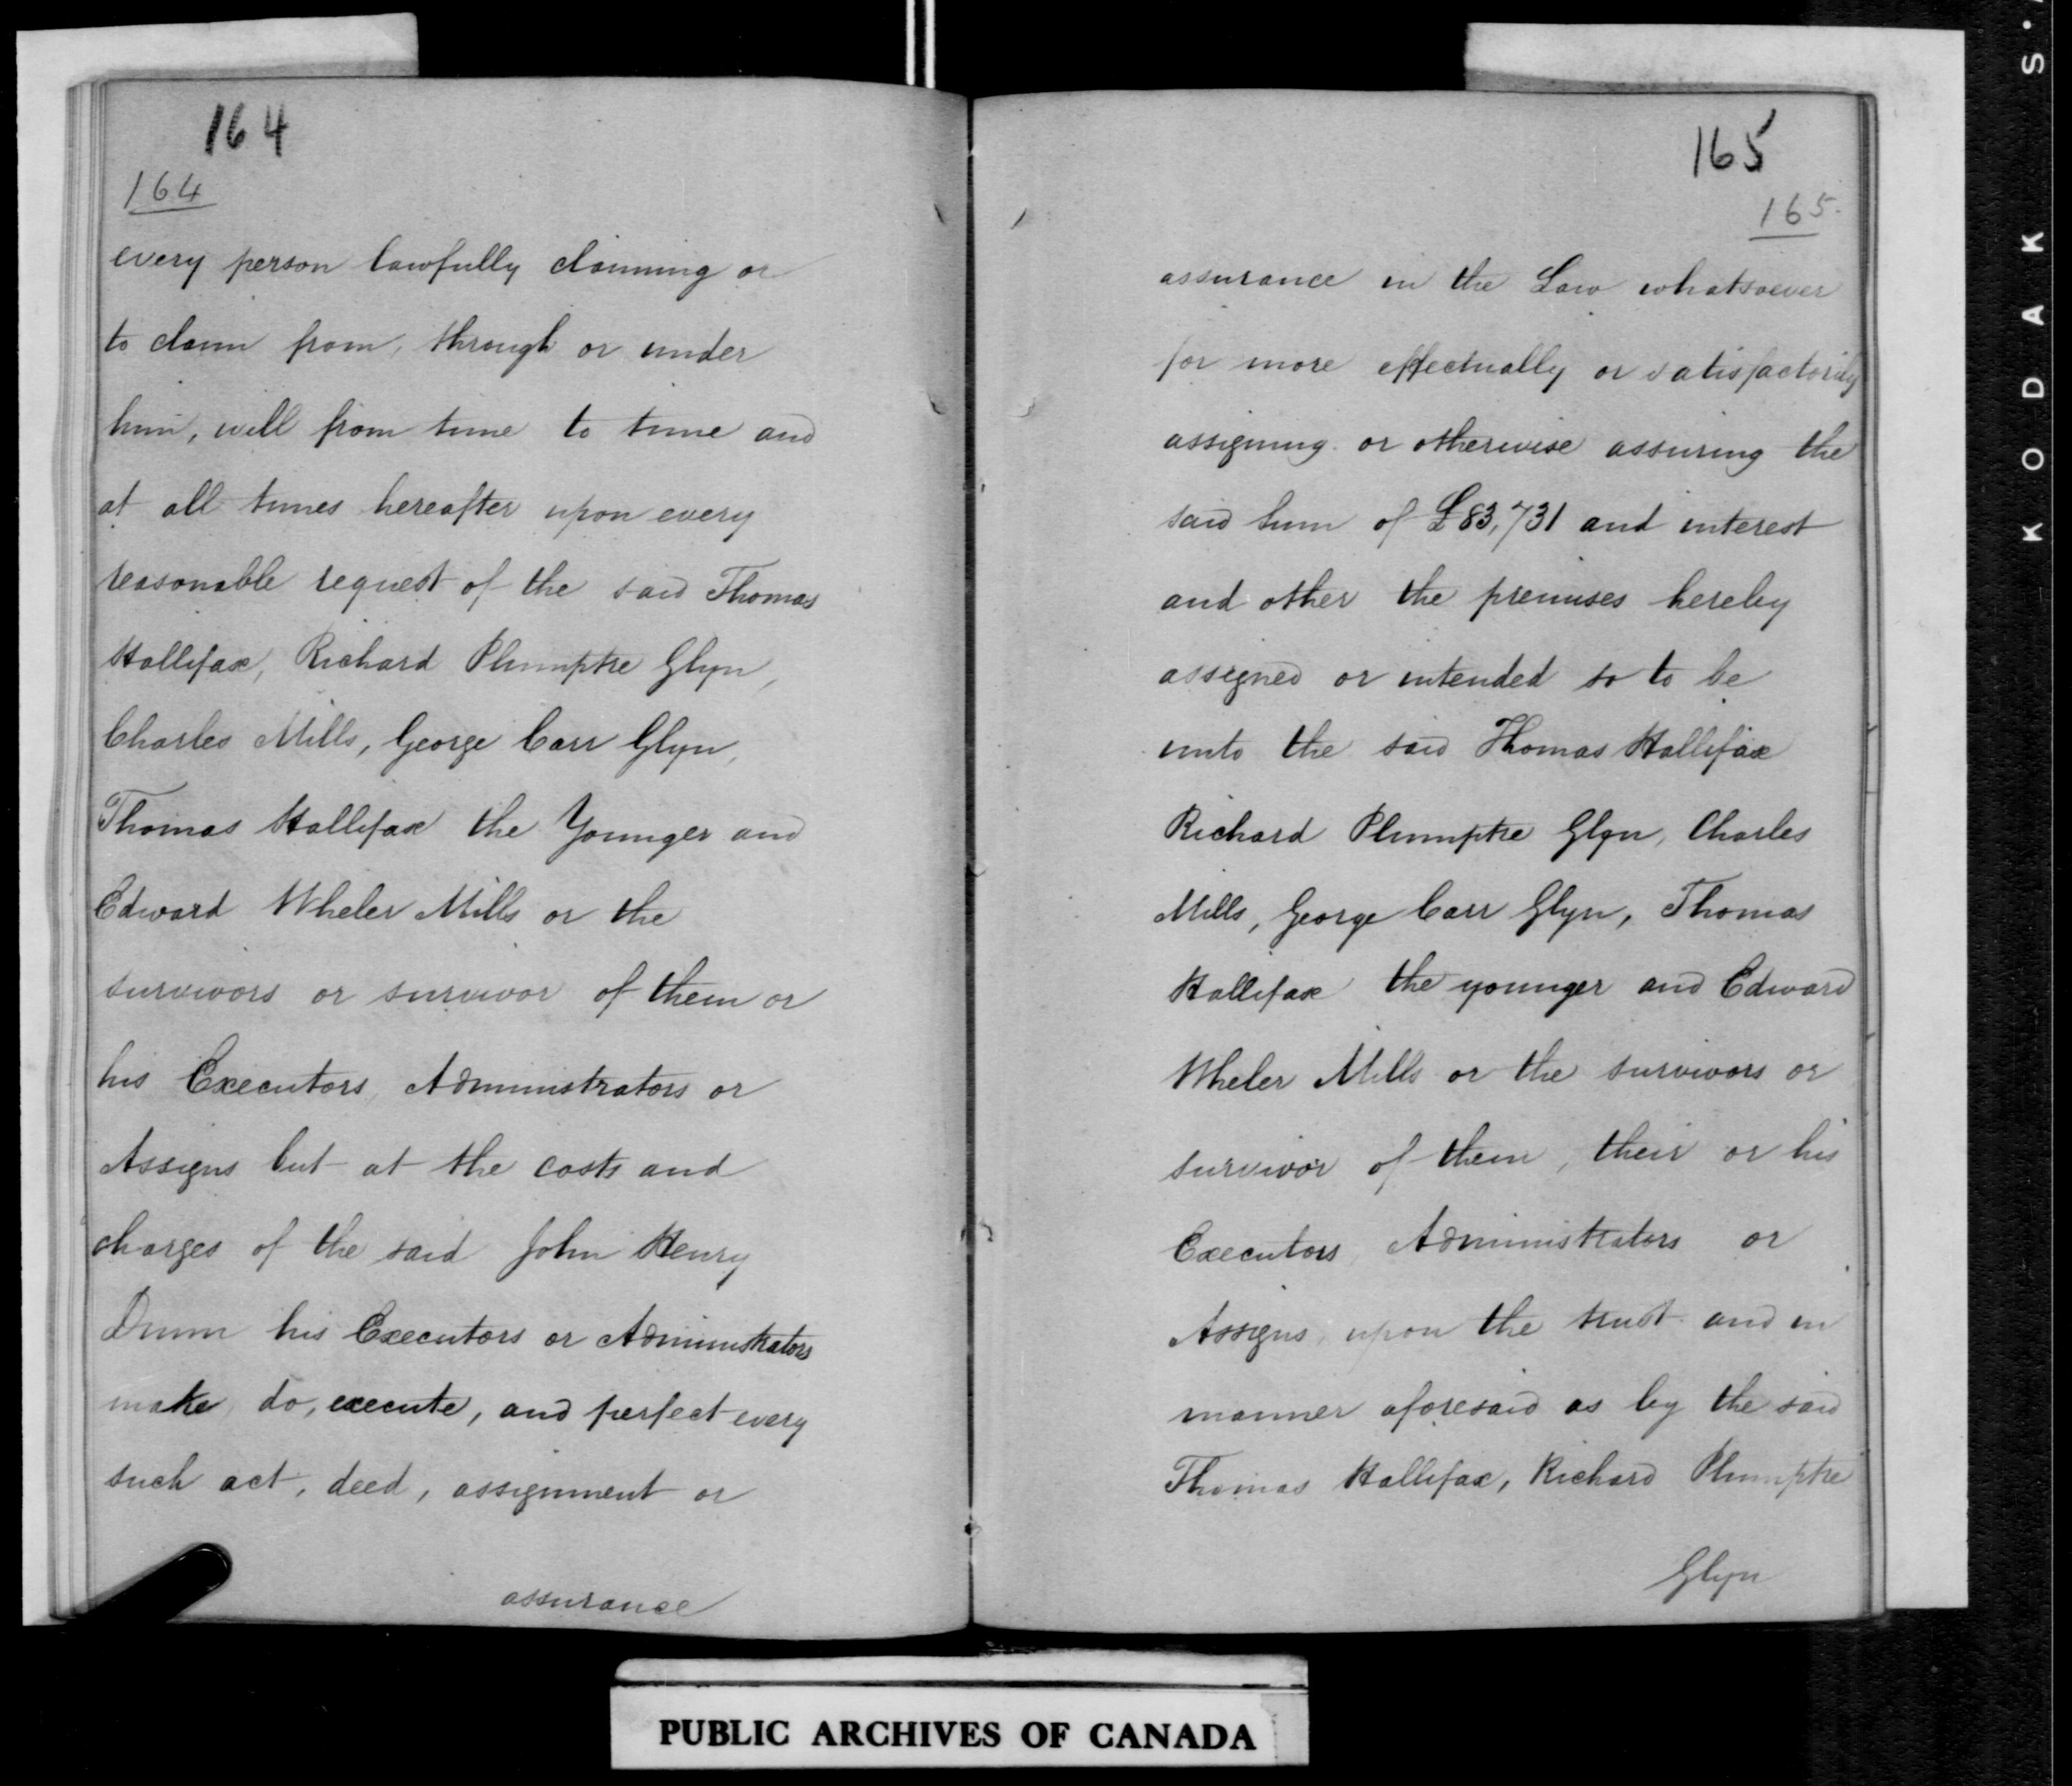 164
164
every person lawfully claiming or
to claim from, through or under
him, will from time to time and
at all times hereafter upon every
reasonable request of the said Thomas
Hallifax, Richard Plumptre Glyn,
Charles Mills, George Carr Glyn,
Thomas Hallifax the Younger and
Edward Wheler Mills or the
survivors or survivor of them or
his Executors, Administrators or
Assigns but at the costs and
charges of the said John Henry
Dunn his Executors or Administrators
make, do, execute, and perfect every
such act, deed, assignment or
assurance
165
165.
assurance in the Law whatsoever
for more effectually or satisfactorily
assigning or otherwise assuring the
said sum of £83,731 and interest
and other the premises hereby
assigned or intended so to be
unto the said Thomas Hallifax
Richard Plumptre Glyn, Charles
Mills, George Carr Glyn, Thomas
Hallifax the younger and Edward
Wheler Mills or the survivors or
survivor of them, their or his
Executors, Administrators or
Assigns, upon the trust and in
manner aforesaid as by the said
Thomas Hallifax, Richard Plumptre
Glyn
PUBLIC ARCHIVES OF CANADA
KODAK S.